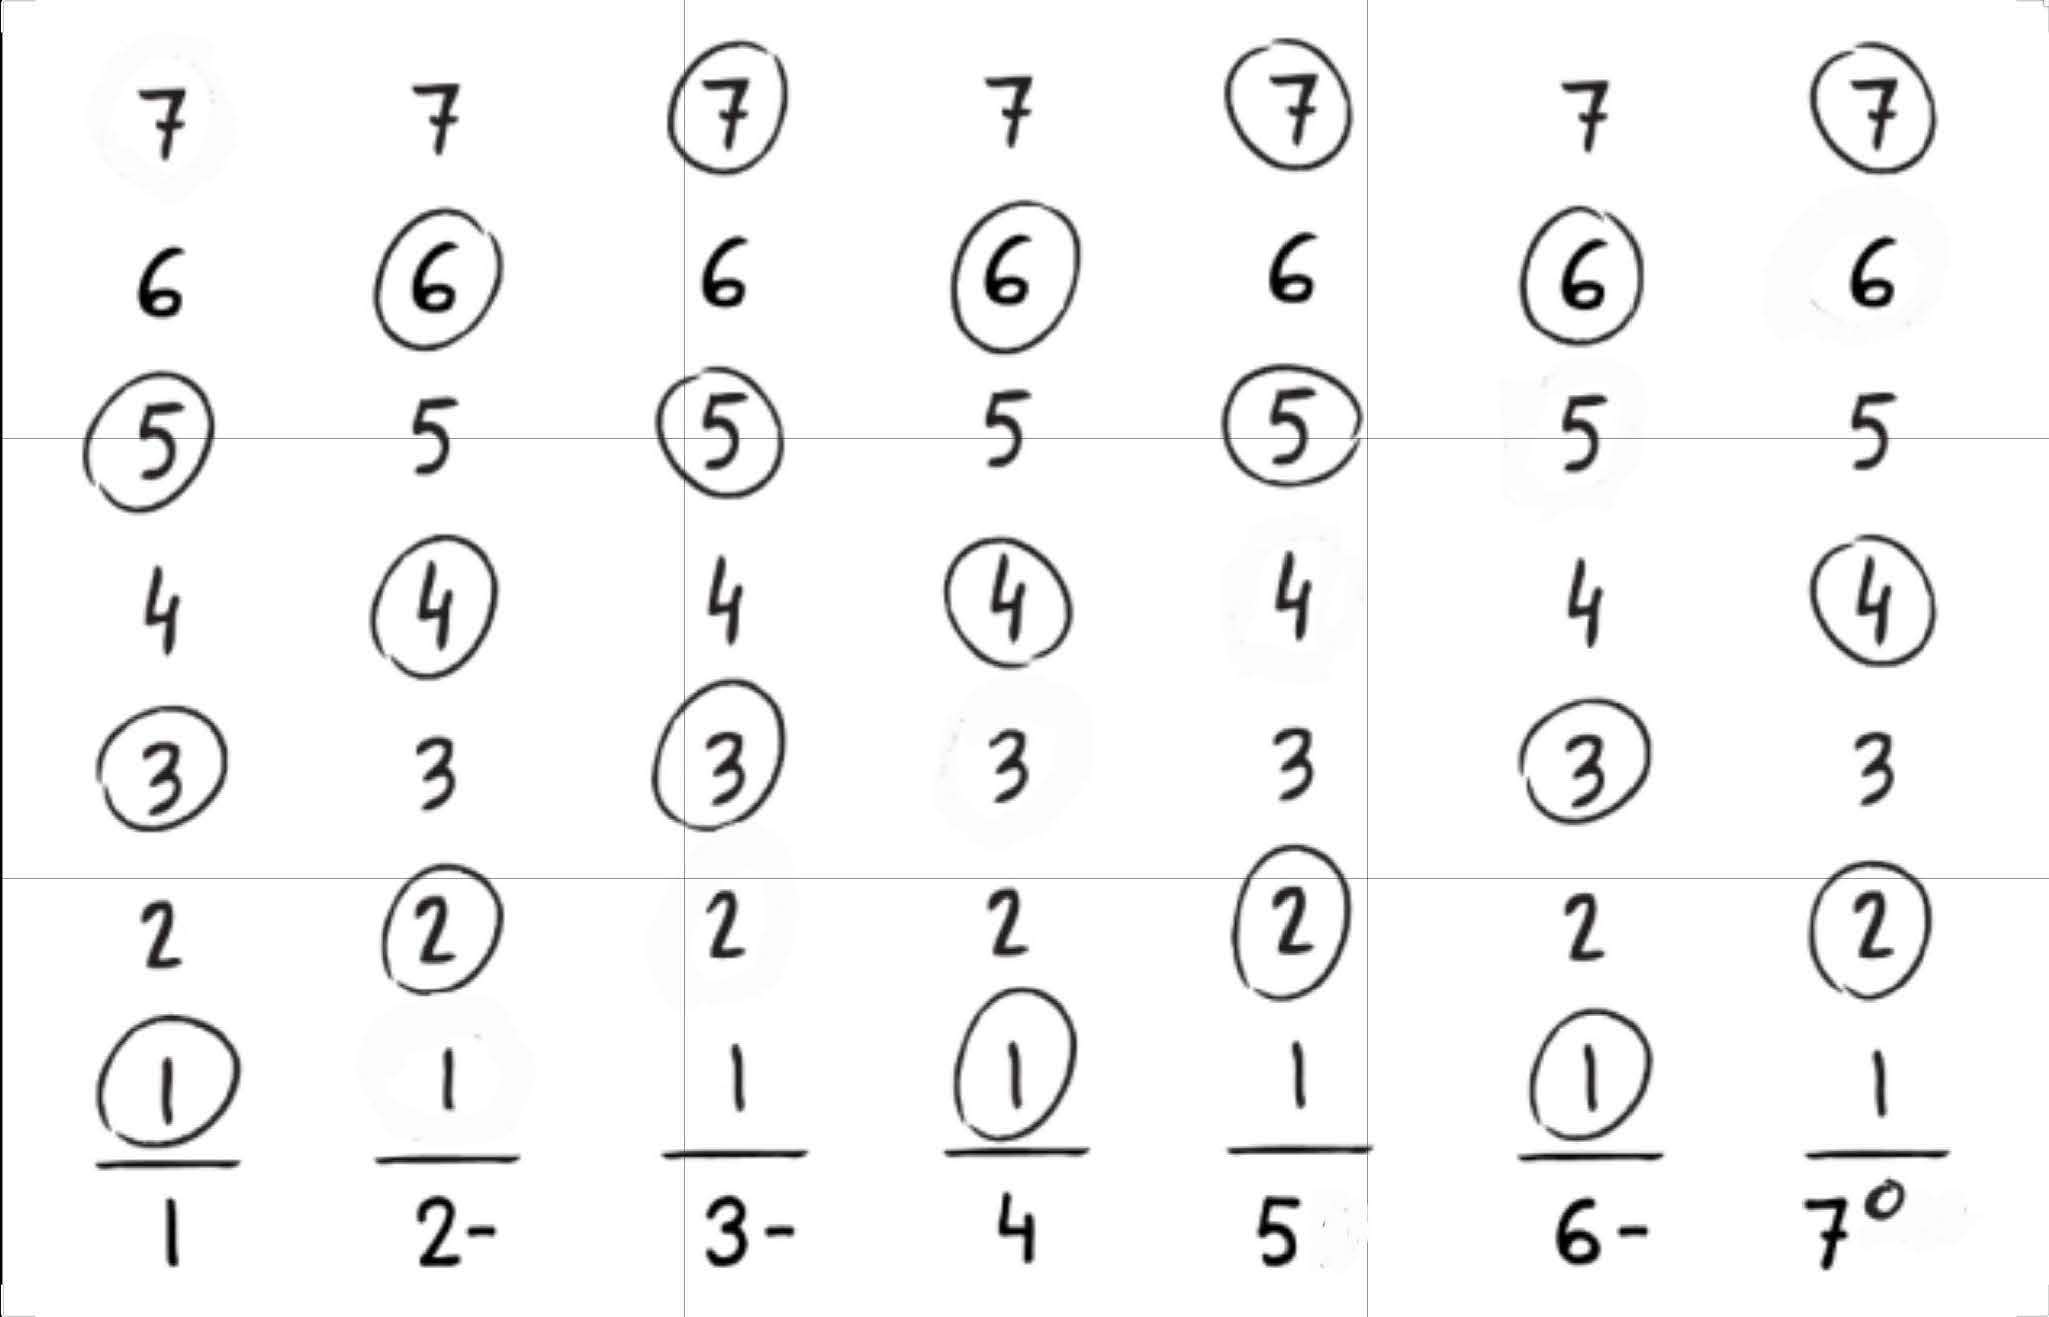 7 7 7 7 7 7 7
6 6 6 6 6 6 6
5 5 5 5 5 5 5
4 4 4 4 4 4 4
3 3 3 3 3 3 3
2 2 2 2 2 2 2
1 1 1 1 1 1 1
1 2- 3- 4 5 6- 7°